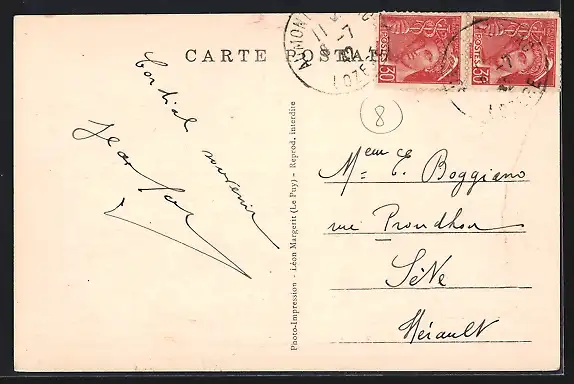 CARTE POSTALE
POSTES
30
POSTES
30
LOZERE
8
Cordial souvenir
Photo-Impression - Léon Margerit (Le Puy) - Reprod. interdite
E. Boggiano
rue Proudhon
Sète
Hérault